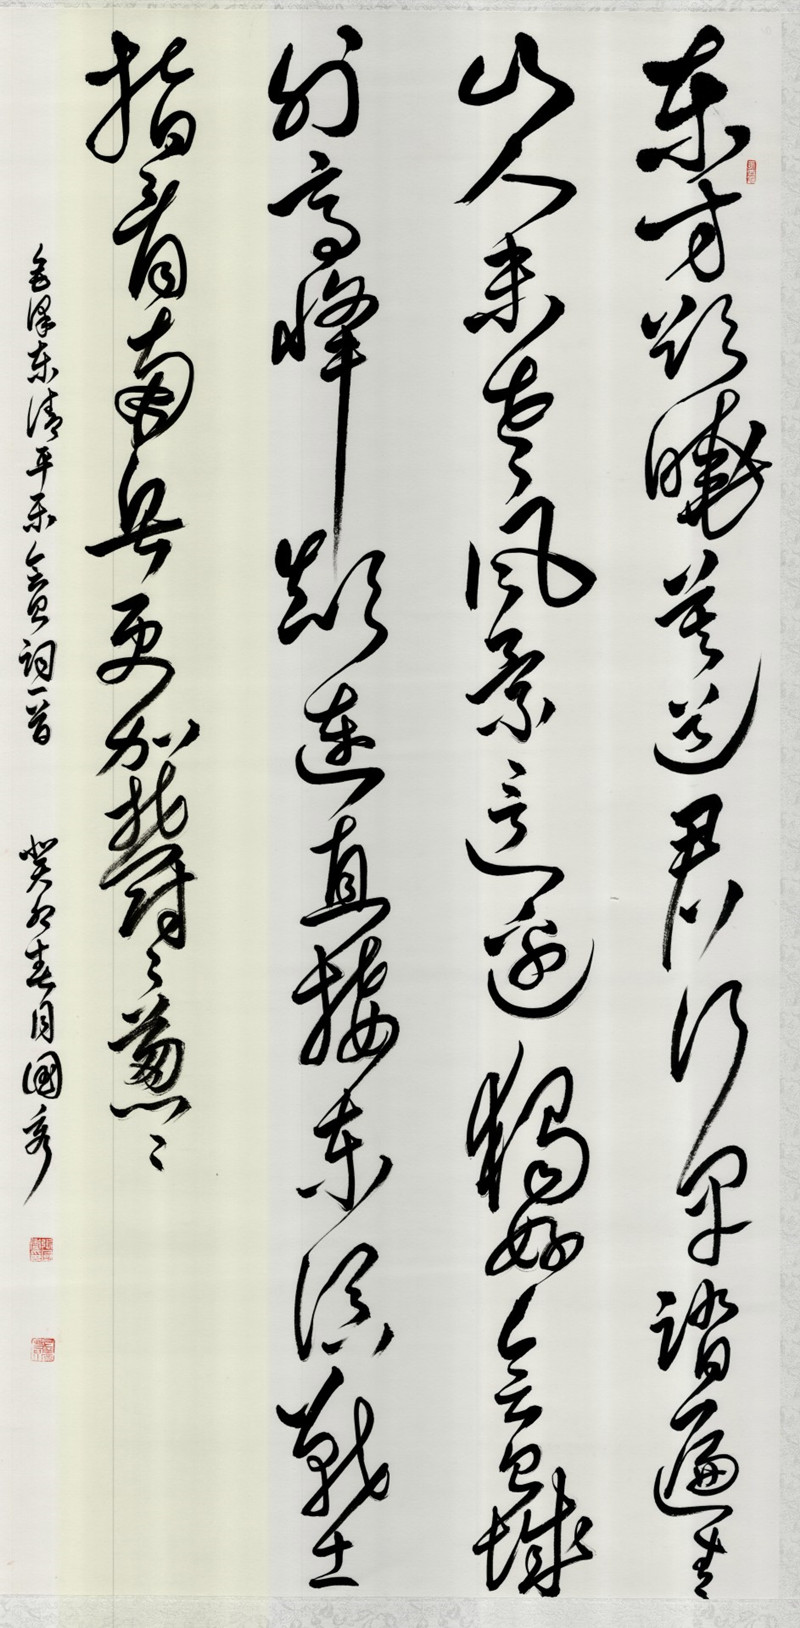 东方欲曉莫道君行早踏遍青
山人未老风景這边獨好会昌城
外高峰颠连直接东溟战士
指看南粤更加鬱々葱々
毛泽东清平乐会昌词一首 癸卯春月國秀